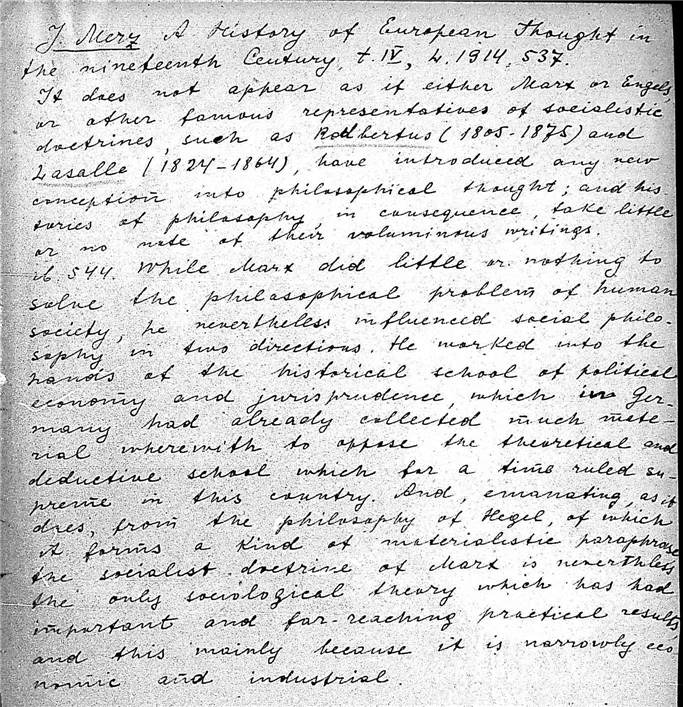 J. Merz A History of European Thought in
the nineteenth Century, t. IV, L. 1914, 537.
It does not appear as if either Marx or Engels,
or other famous representatives of socialistic
doctrines, such as Rodbertus (1805-1875) and
Lasalle (1824-1864), have introduced any new
conception into philosophical thought; and his
tories of philosophy, in consequence, take little
or no note of their voluminous writings.
ib 544. While Marx did little or nothing to
solve the philosophical problem of human
society, he nevertheless influenced social philo-
sophy in two directions. He worked into the
hands of the historical school of political
economy and jurisprudence, which in Ger-
many had already collected much mate-
rial wherewith to oppose the theoretical and
deductive school which for a time ruled su-
preme in this country. And, emanating, as it
does, from the philosophy of Hegel, of which
it forms a kind of materialistic paraphrase
the socialist doctrine of Marx is nevertheless
the only sociological theory which has had
important and far-reaching practical results,
and this mainly because it is narrowly eco
nomic and industrial.